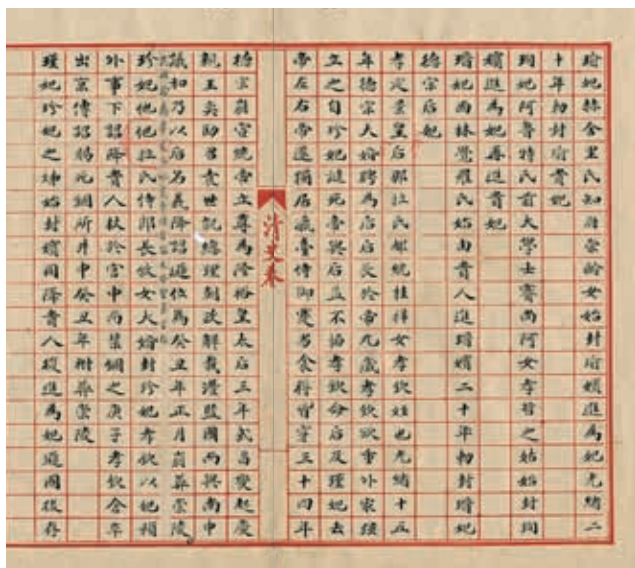 瑜妃赫舍里氏知府崇齡女始封瑜嬪進為妃光緒二
十年初封瑜貴妃
珣妃阿魯特氏前大學士賽尚阿女孝哲之姑始封珣
嬪進為妃再進貴妃
瑨妃西林覺羅氏始由貴人進瑨嬪二十年初封瑨妃
德宗后妃
孝定景皇后那拉氏都統桂祥女孝欽姪也光緒十五
年德宗大婚聘為后后長於帝九歲孝欽欲重外家強
立之自珍妃譴死帝與后益不協孝欽命后及瑾妃去
帝左右帝遷獨居瀛臺侍御寥 食 三十四年
清史卷
德宗崩宣統帝立尊為隆裕皇太后三年武昌變起慶
親王奕劻召袁世凱總理朝政解載灃監國而與南中
議和乃以后名義降詔遜位為癸丑年正月崩葬崇陵
珍妃他他拉氏侍郎長敘女大婚封珍妃孝欽以妃預
外事下詔降貴人杖於宮中而禁錮之庚子孝欽倉卒
出宮傳詔賜死錮所井中癸丑年祔葬崇陵
瑾妃珍妃之姊始封嬪同降貴人複進為妃遜國後存